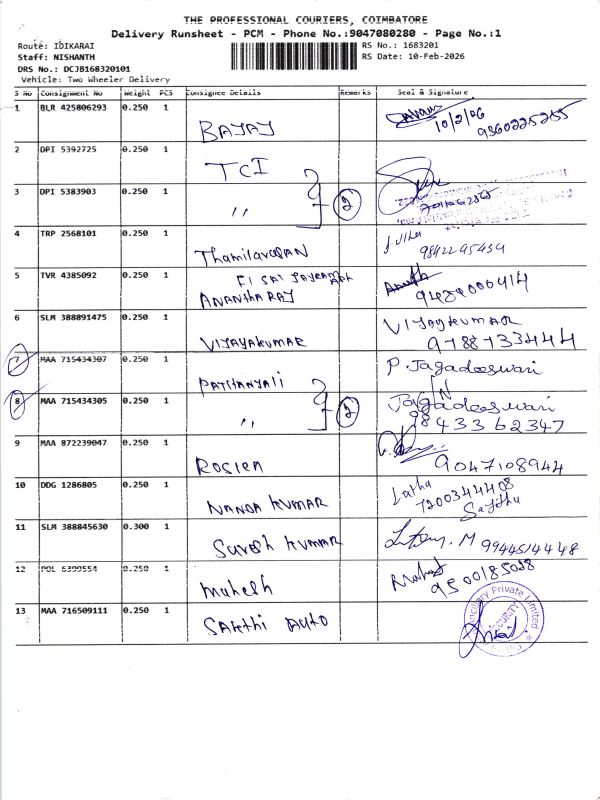 THE PROFESSIONAL COURIERS, COIMBATORE
Delivery Runsheet - PCM - Phone No.:9047080280 - Page No.:1
Route: IDIKARAI
RS No.: 1683201
Staff: NISHANTH
RS Date: 10-Feb-2026
DRS No.: DCJB168320101
Vehicle: Two Wheeler Delivery
S No Consignment No Weight PCS Consignee Details Remarks Seal & Signature
1 BLR 425806293 0.250 1 BAJAJ 10/2/26 9360225255
2 DPI 5392725 0.250 1 TCI
3 DPI 5383903 0.250 1 " 2
4 TRP 2568101 0.250 1 Thamilarasan 9842295454
5 TVR 4385092 0.250 1 ANANTHARAJ
6 SLM 388891475 0.250 1 VIJAYAKUMAR VIJAYKUMAR
9788733444
7 MAA 715434307 0.250 1 PATHANYALI P. Jagadeeswari
8 MAA 715434305 0.250 1 " 2 Jagadeeswari
9843362347
9 MAA 872239047 0.250 1 ROSIEN 9047108944
10 DDG 1286805 0.250 1 NANDA KUMAR Latha
7200344408
11 SLM 388845630 0.300 1 Suresh KUMAR M 9944514448
12 POL 6399554 0.250 1 Mahesh Mahesh
9500185028
13 MAA 716509111 0.250 1 SAKTHI AUTO
Private Limited
SECURITY